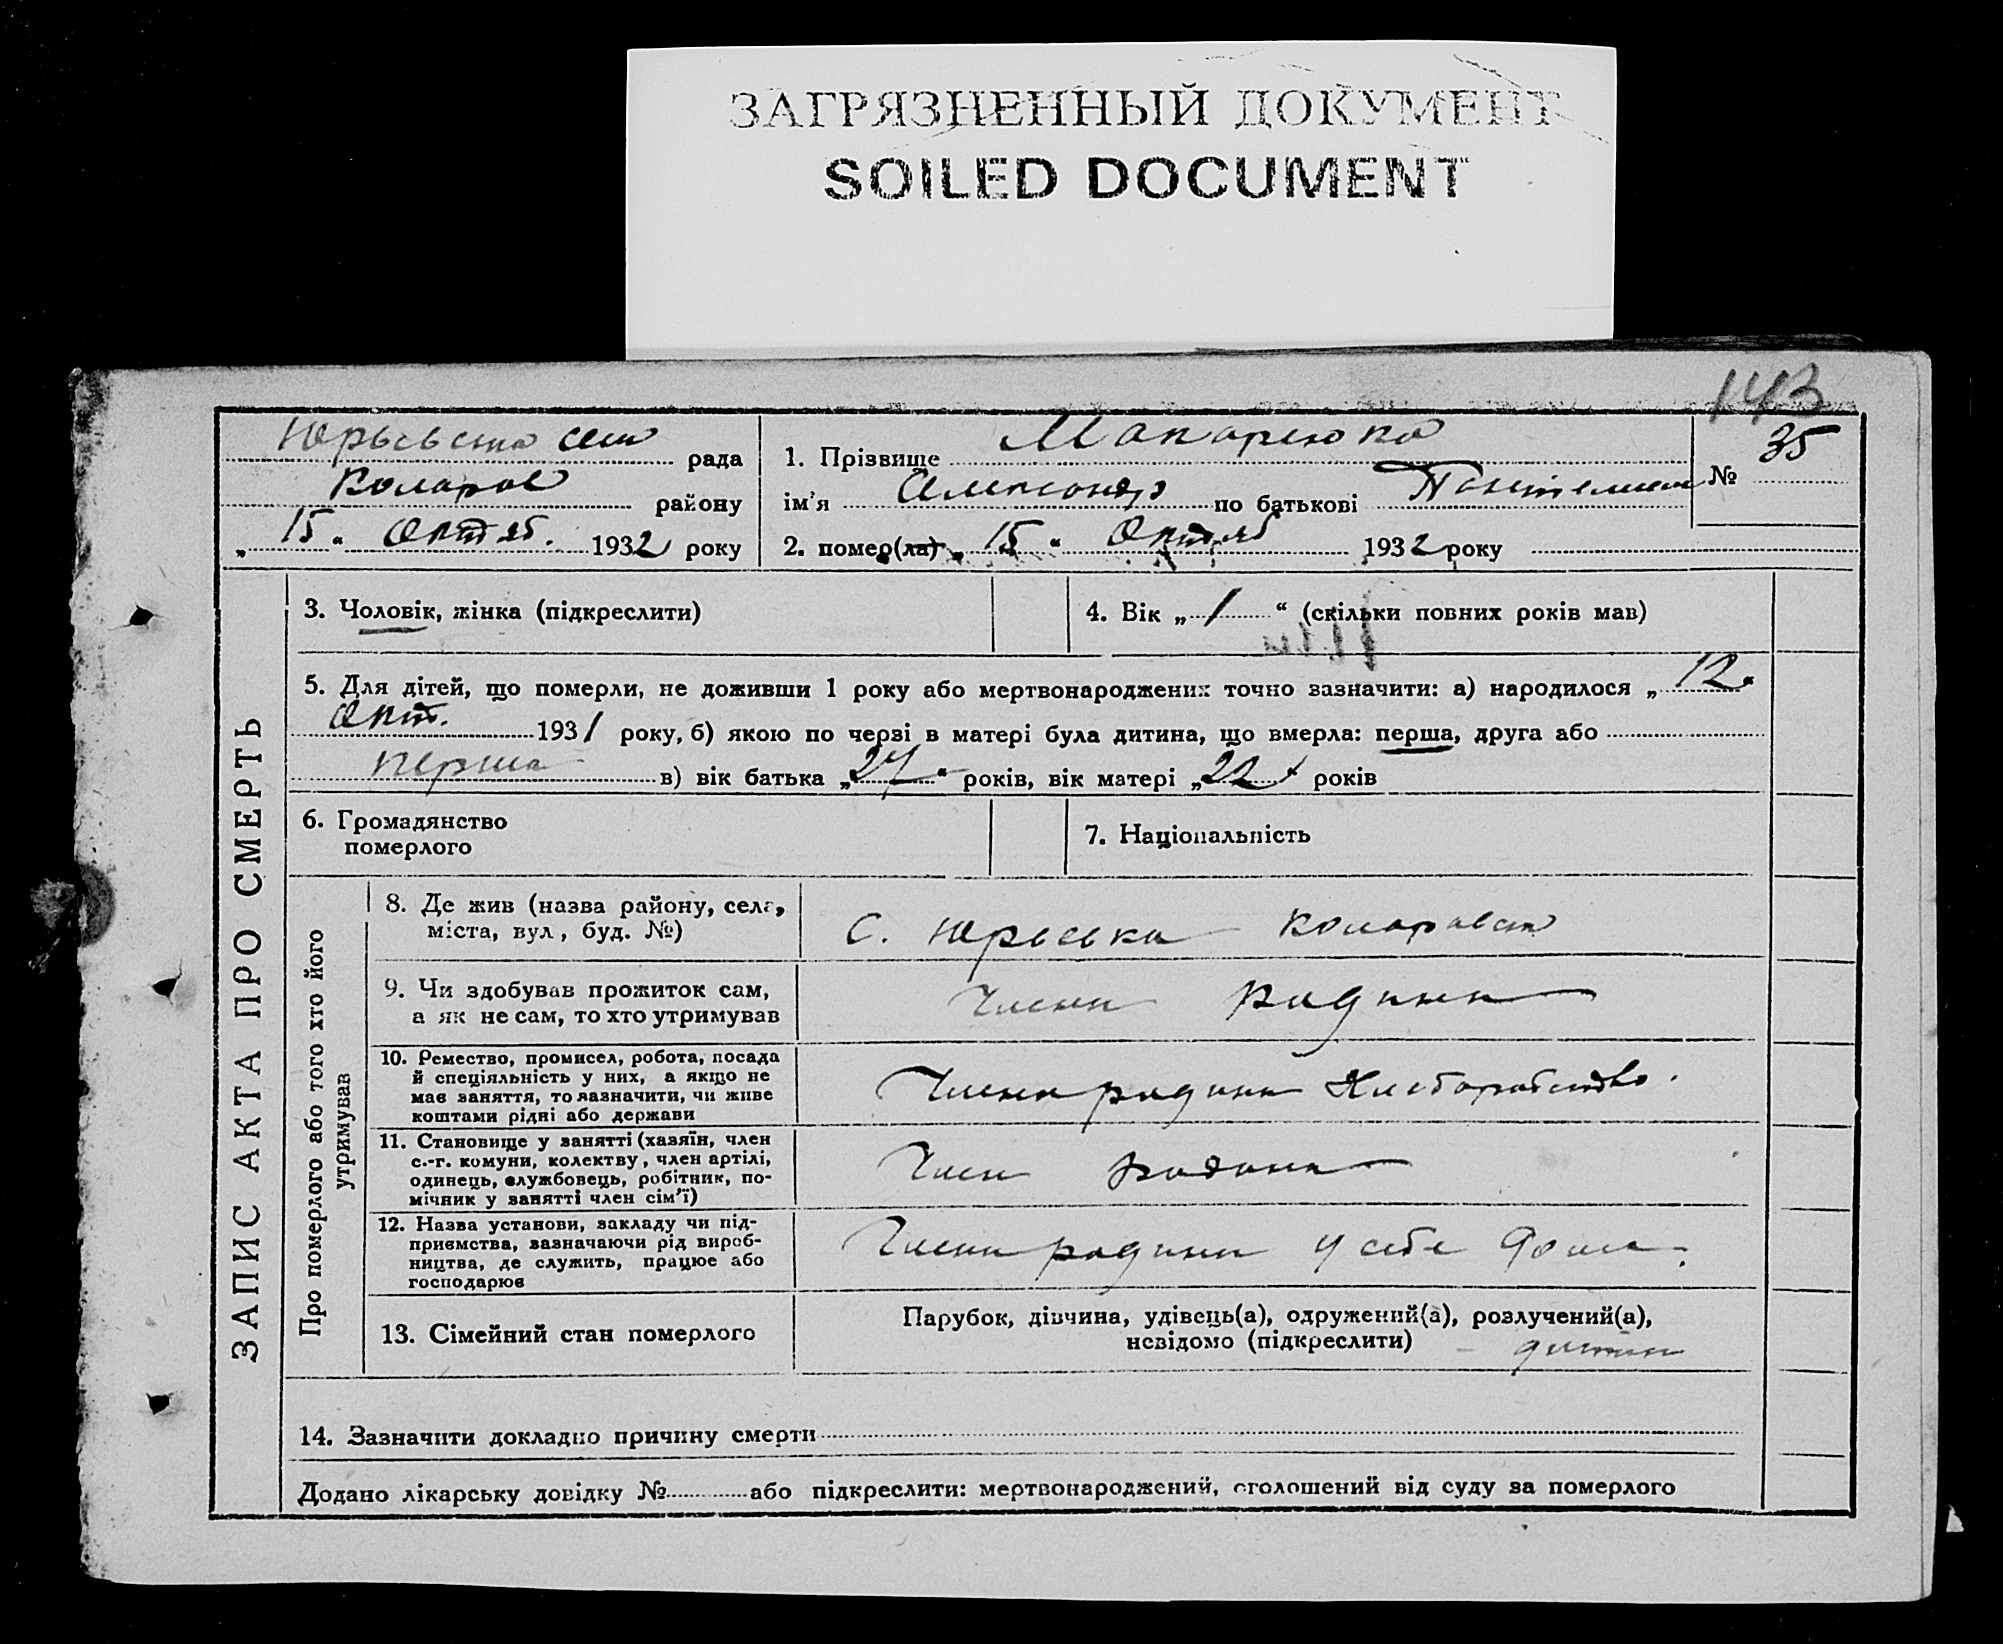 ЗАГРЯЗНЕННЫЙ ДОКУМЕНТ
SOILED DOCUMENT
143
Юрьевська сел рада
Коларов району
„ 15 “ Октяб. 1932 року
1. Прізвище
ім'я Александр по батькові
№ 35
2. помер(ла) „ 15 “ Октяб 1932 року
ЗАПИС АКТА ПРО СМЕРТЬ
3. Чоловік, жінка (підкреслити)
4. Вік „ 1 “ (скільки повних років мав)
5. Для дітей, що померли, не доживши 1 року або мертвонароджених точно зазначити: а) народилося „ 12 “
Окт. 1931 року, б) якою по черзі в матері була дитина, що вмерла: перша, друга або
перша в) вік батька „ 27 “ років, вік матері „ 22 “ років
6. Громадянство
померлого
7. Національність
Про померлого або того хто його
утримував
8. Де жив (назва району, села,
міста, вул, буд. №)
с. Юрьевка Коларовск
9. Чи здобував прожиток сам,
а як не сам, то хто утримував
Член родини
10. Ремество, промисел, робота, посада
й спеціяльність у них, а якщо не
має заняття, то зазначити, чи живе
коштами рідні або держави
Член родини Хлеборобство.
11. Становище у занятті (хазяїн, член
с.-г. комуни, колектву, член артілі,
одинець, службовець, робітник, по-
мічник у занятті член сім'ї)
Член родини
12. Назва установи, закладу чи під-
приємства, зазначаючи рід вироб-
ництва, де служить, працює або
господарює
Член родини у себе дома.
13. Сімейний стан померлого
Парубок, дівчина, удівець(а), одружений(а), розлучений(а),
невідомо (підкреслити) - дитин
14. Зазначити докладно причину смерти
Додано лікарську довідку № або підкреслити: мертвонароджений, оголошений від суду за померлого